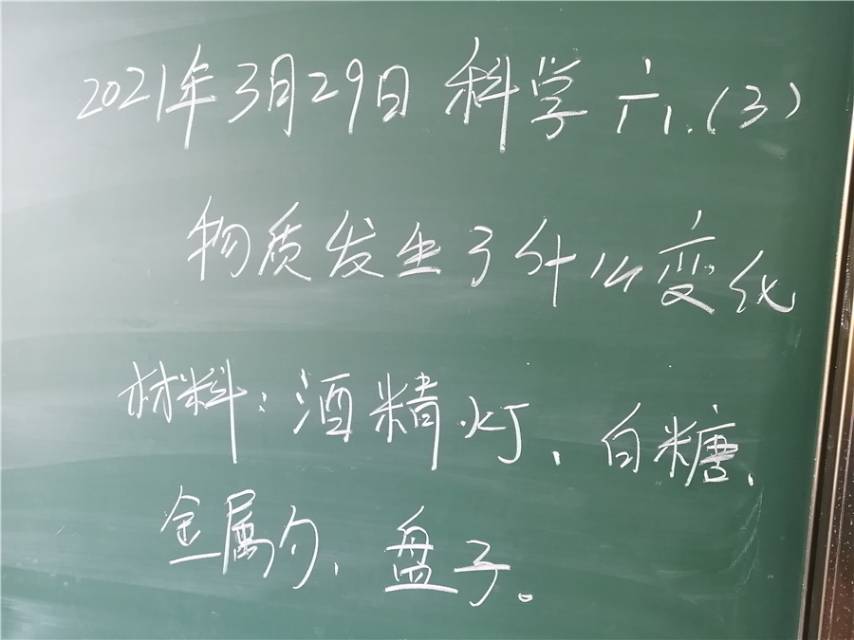 2021年3月29日 科学 六.(3)
物质发生了什么变化
材料：酒精灯、白糖、
金属勺、盘子。